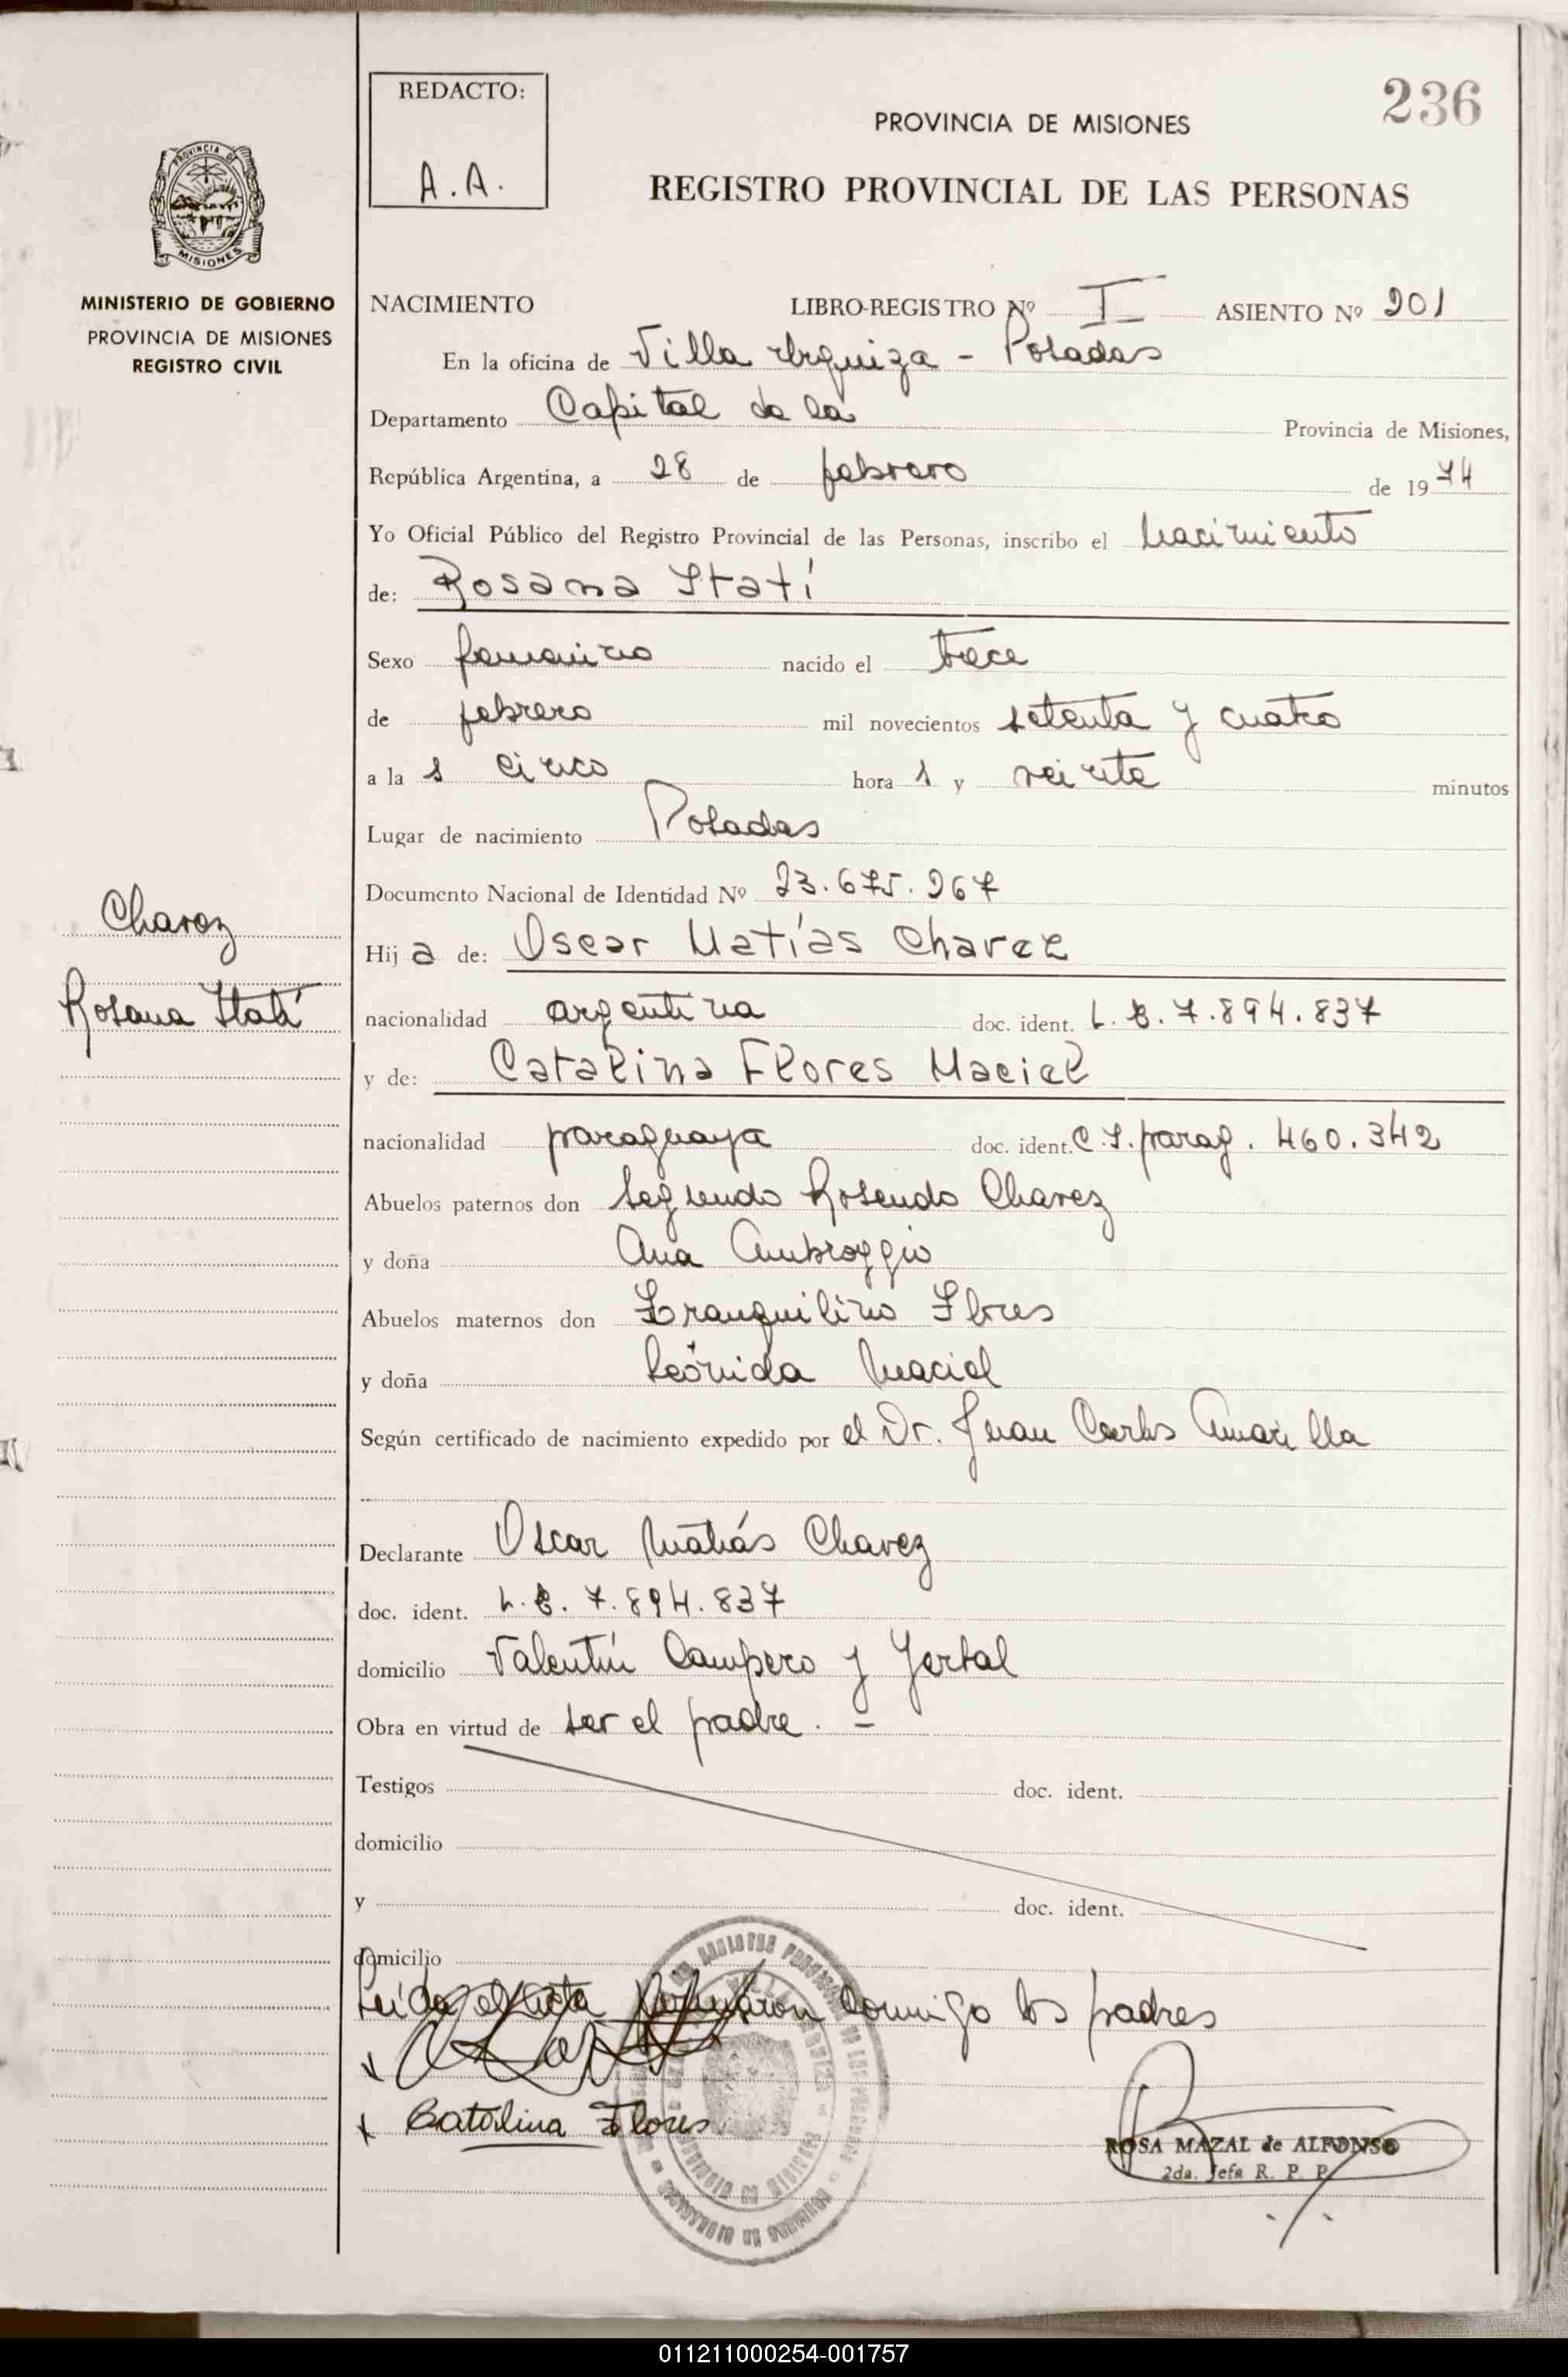 REDACTO:
A.A.
236
PROVINCIA DE MISIONES
REGISTRO PROVINCIAL DE LAS PERSONAS
PROVINCIA DE
MISIONES
MINISTERIO DE GOBIERNO
PROVINCIA DE MISIONES
REGISTRO CIVIL
NACIMIENTO LIBRO-REGISTRO Nº I ASIENTO Nº 201
En la oficina de Villa Urquiza - Posadas
Departamento Capital de la Provincia de Misiones,
República Argentina, a 28 de febrero de 1974
Yo Oficial Público del Registro Provincial de las Personas, inscribo el nacimiento
de: Rosana Itatí
Sexo femenino nacido el trece
de febrero mil novecientos setenta y cuatro
a la s cinco hora s y veinte minutos
Lugar de nacimiento Posadas
Documento Nacional de Identidad Nº 23.675.267
Chavez
Hij a de: Oscar Matías Chavez
Rosana Itatí
nacionalidad argentina doc. ident. L.E. 7.894.837
y de: Catalina Flores Maciel
nacionalidad paraguaya doc. ident. C.I. parag. 460.342
Abuelos paternos don Segundo Rosendo Chavez
y doña Ana Ambroggio
Abuelos maternos don Tranquilino Flores
y doña Leónida Maciel
Según certificado de nacimiento expedido por el Dr. Juan Carlos Amarilla
Declarante Oscar Matías Chavez
doc. ident. L.E. 7.894.837
domicilio Valentín Campero y Yerbal
Obra en virtud de ser el padre. -
Testigos doc. ident.
domicilio
y doc. ident.
domicilio
Leída el acta firmaron conmigo los padres
Catalina Flores
ROSA MAZAL de ALFONSO
2da. Jefa R. P. P.
011211000254-001757